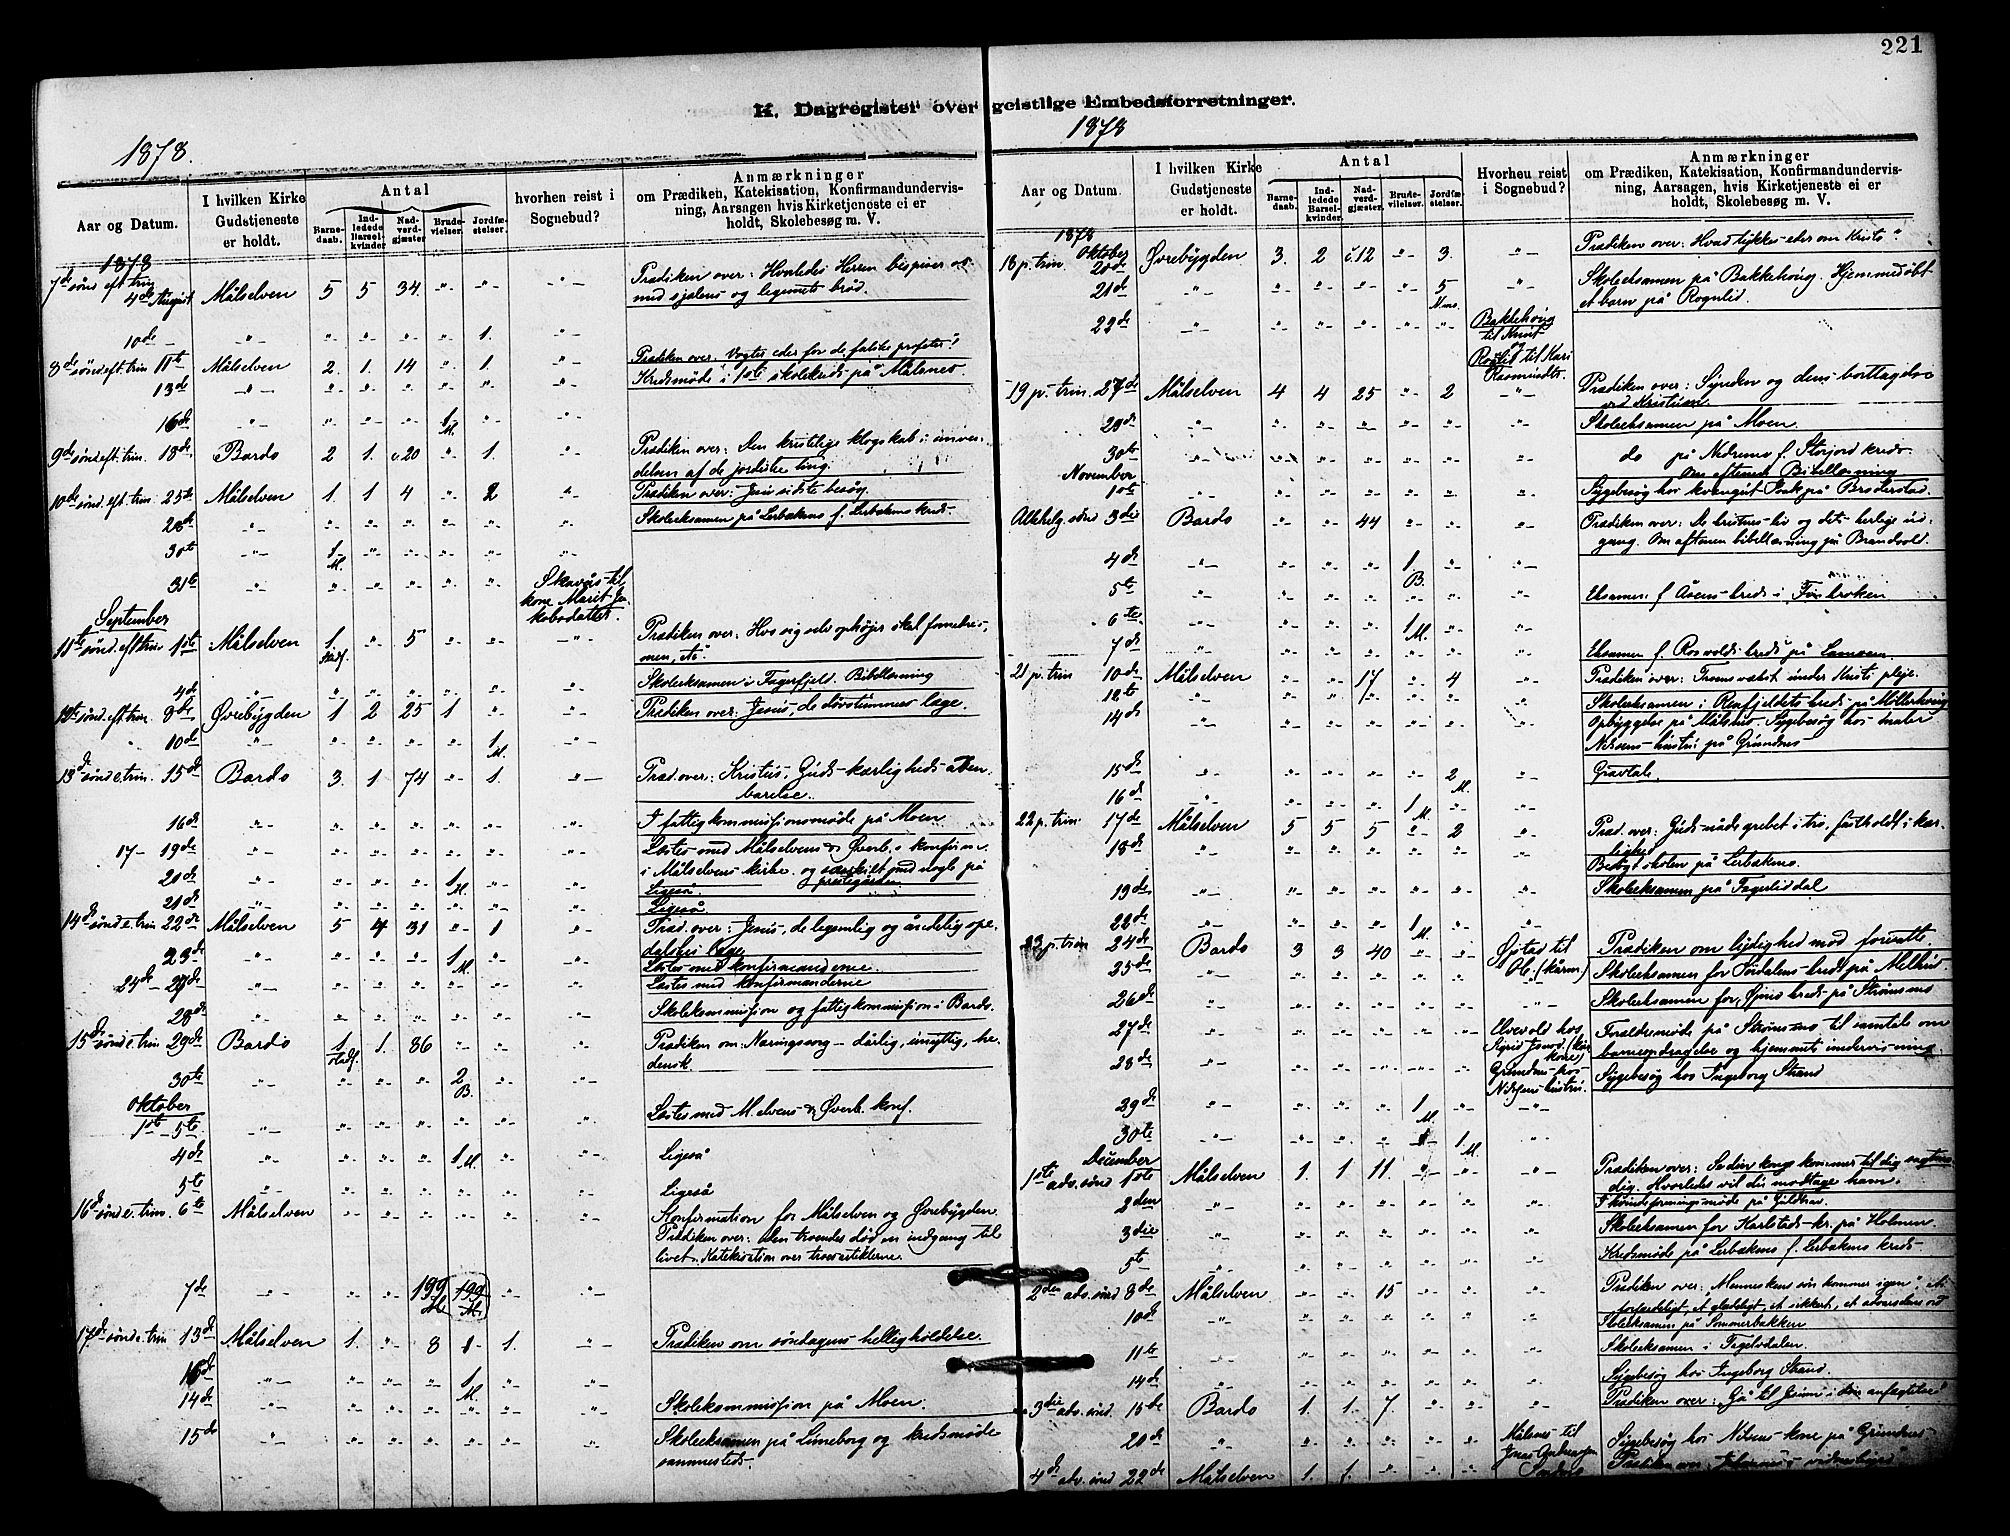 221
K. Dagregister over geistlige Embedsforretninger.
1878.
1878
Aar og Datum.
I hvilken Kirke Gudstjeneste er holdt.
Antal
Barne-daab.
Ind-ledede Barsel-kvinder
Nad-verd-gjæster
Brude-vielser.
Jordfæ-stelser.
hvorhen reist i Sognebud?
Anmærkninger
om Prædiken, Katekisation, Konfirmandundervis-
ning, Aarsagen hvis Kirketjeneste ei er
holdt, Skolebesøg m. V.
1878
7de sønd eft trin
4de August Målselven 5 5 34. " " " Prædiken over: Hvorledes Herren bespiser os
med sjælens og legemets brød.
10de " " " " " 1. "
8de sønd eft. trin 11te Målselven 2. 1. 14 " 1. " Prædiken over: Vogter eder for de falske profeter!
13de " " " " " " " Kredsmøde i 1ste skolekreds på Målsnes.
16de " " " " 1 M. " "
9de sønd eft. trin. 18de Bardo 2 1. c. 20 " 1. " Prædiken over: Den kristelige klogskab i anven-
delsen af de jordiske ting.
10de sønd. eft trin 25de Målselven 1. 1 4 " 2 " Prædiken over: Jesu sidste besøg.
28de " " " " " " " Skoleeksamen på Lerbækmo f. Lerbækmo kreds.
30te " 1 M. " " " " "
31te " " " " " " til
kone Marit Ja-
kobsdatter.
September
11te sønd. eft trin 1ste Målselven 1. " 5 " " " Prædiken over: Hvo sig selv ophøjer skal fornedres,
men, etc.
4de " " " " " " " Skoleeksamen i Fagerfjeld. Bibellæsning
12te sønd. eft trin. 8de Øvrebygden 1 2 25 1 " " Prædiken over: Jesus, de døvstummes læge.
10de " " " " " 1. M. "
13de sønd e. trin. 15de Bardo 3. 1 74 " 1. " Præd. over: Kristus, Guds kærligheds åben-
barelse.
16de " " " " " " " I fattigkommissionsmøde på Moen
17 - 19de " " " " " " " Læste med Målselvens & Øvreb.s konfirm.
i Målselvens kirke og særskilt med nogle på
prestegården.
20de " " " " 1 M. " " Ligeså
21de " " " " " " " Ligeså.
14de sønd e. trin 22de Målselven 5 4 31 " 1 " Præd. over: Jesus, de legemlig og åndelig spe-
dalskes læge.
23de " " " " 1 M. " " Læste med konfirmanderne.
24de - 27de " " " " " " " Læste med konfirmanderne
28de " " " " " " " Skolekommission og fattigkommission i Bardo.
15de sønd e. trin 29de Bardo 1 1. 86 " " " Prædiken om: Næringssorg — dårlig, unyttig, he-
densk.
30te " " " " 2 B. " "
Oktober
1ste - 5te " " " " " " " Læste med M.elvens & Øvreb. konf.
4de " " " " 1 M. " " Ligeså
5te " " " " " " " Ligeså
16de sønd e. trin. 6te Målselven " " " " " " Konfirmation for Målselven og Øvrebygden.
Prædiken over: den troendes død en indgang til
livet. Katekisation over trosartiklerne.
7de " " " 199 M. 199 M. " "
17de sønd e. trin 13de Målselven 1. " 8 1 1. " Prædiken om søndagens helligholdelse.
16de " " " " 1 M. " "
14de " " " " " " " Skolekommission på Moen.
15de " " " " " " " Skoleeksamen på Limeborg og kredsmøde
sammesteds.
Aar og Datum.
I hvilken Kirke Gudstjeneste er holdt.
Antal
Barne-daab.
Ind-ledede Barsel-kvinder.
Nad-verd-gjæster.
Brude-vielser.
Jordfæ-stelser.
Hvorhen reist i Sognebud?
Anmærkninger
om Prædiken, Katekisation, Konfirmandundervis-
ning, Aarsagen, hvis Kirketjeneste ei er
holdt, Skolebesøg m. V.
1878
18 p. trin. Oktober 20de Øvrebygden 3. 2 c. 12 " 3. " Prædiken over: Hvad tykkes eder om Kristo?
21de " " " " " 5 " Skoleeksamen på Bakkehaug. Hjemmedøbt
et barn på Rognlid.
22de " " " " " " Bakkehaug
til Knut
og
til Kari
Rasmusdtr.
19 p. trin. 27de Målselven 4 4 25 " 2 " Prædiken over: Synden og dens borttagelse
ved Kristum.
29de " " " " " " " Skoleeksamen på Moen.
30te " " " " " " " do på Nedremo f. Storjord kreds.
Om aftenen Bibellæsning.
November
1ste " " " " " " " Sygebesøg hos kvæugut Isak på Broderstad.
Allehelg. sønd 3die Bardo " " 44 " " " Prædiken over: De kristnes liv og dets herlige ud-
gang. Om aftenen bibellæsning på Brandvold.
4de " " " " 1 B. " "
5te " " " " " " " Eksamen f. Åsens kreds i Fosbroken
6te " " " " 1 M. " "
7de " " " " " " " Eksamen f. Rosvolds kreds på
21 p. trin 10de Målselven " " 17 " 4 " Prædiken over: Troens vækst under Kristi pleje.
12te " " " " " " " Skoleeksamen i Renfjeldets kreds på
14de " " " " " " " Opbyggelse på Målsnes. Sygebesøg hos maler
Nilsens hustru på Grundnes
15de " " " " " 2 M. " Gravtale.
16de " " " " 1 M. " "
22 p. trin 17de Målselven 5 5 5 " 2 " Præd. over: Guds nåde grebet i tro, fastholdt i kær-
lighed
18de " " " " " " " Besøgt skolen på Lerbækmo.
19de " " " " " " " Skoleeksamen på Fagerliddal
22de " " " " 1 M. " "
23 p. trin 24de Bardo 3 3 40 " " Øpstad til Prædiken om lydighed mod foresatte.
25de " " " " " " Ole (kårm.) Skoleeksamen for kreds på Melhus.
26de " " " " " " " Skoleeksamen for kreds på Strømsmo
27de " " " " " " Elvevold hos Forældremøde på Strømsmo til samtale om
Sigrid (kår-
kone) børneopdragelse og hjemmets undervisning.
28de " " " " " " Grundnes hos Sygebesøg hos Ingeborg Strand
Nilsens hustru.
29de " " " " 1 M. " "
30te " " " " " 1. M. "
December
1ste adv. sønd 1ste Målselven 1. 1 11. " " " Prædiken over: Se din konge kommer til dig sagtmo-
dig. Hvorledes vil du modtage ham.
2den " " " " " " "
3die " " " " " " " Skoleeksamen for Karlstads kr. på Holmen.
5te " " " " " " " Kredsmøde på Lerbækmo f. Lerbækmo kreds
2den adv. sønd 8de Målselven " " 15 " " " Prædiken over: Menneskens søn kommer igen: et
forfærdeligt, et glædeligt, et sikkert, et advarselens ord
10de " " " " " " " Skoleeksamen på Sommerbakken
11te " " " " " " " Skoleeksamen i
14de " " " " " " " Sygebesøg hos Ingeborg Strand.
3die adv. sønd. 15de Bardo 1. 1. 7. " " " Prædiken over: Gå til Jesum i din anfægtelse!
20de " " " " " " Målsnes til Sygebesøg hos Nilsens kone på Grundnes
Jonas Andreassen
4de adv. sønd 22de Målselven 1. 1. " " " Prædiken over: Johannes's vidnesbyrd